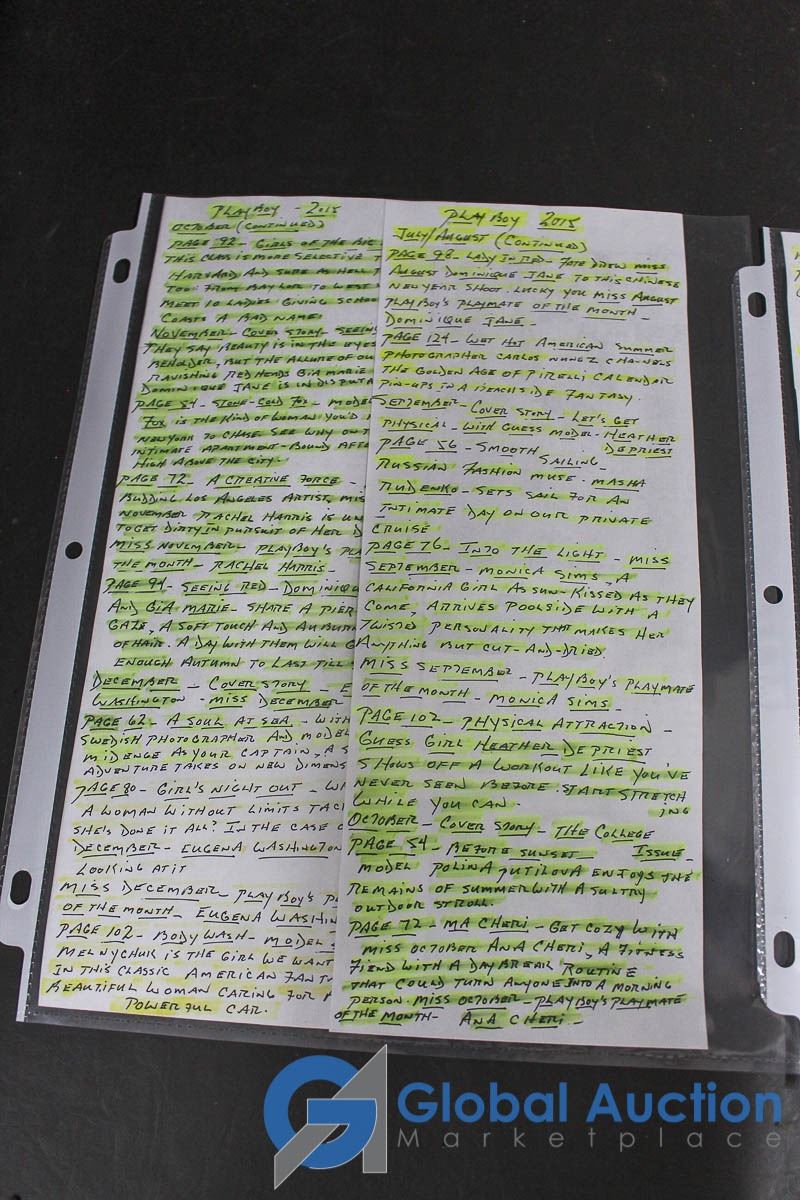 PLAYBOY - 2015
OCTOBER (CONTINUED)
PAGE 92 - GIRLS OF THE BIG
THIS CLASS IS MORE SELECTIVE T
HARVARD AND SURE AS HELL T
TOO: FROM BAYLOR TO WEST
MEET 10 LADIES GIVING SCHOO
COASTS A BAD NAME.
NOVEMBER - COVER STORY - SEEING
THEY SAY BEAUTY IS IN THE EYES
BEHOLDER, BUT THE ALLURE OF OU
RAVISHING RED HEADS GIA MARIE
DOMINIQUE JANE IS IN DISPUTA
PAGE 54 - STONE-COLD FOX - MODEL
FOX IS THE KIND OF WOMAN YOU'D
NEW YORK TO CHASE. SEE WHY ON T
INTIMATE APARTMENT-BOUND AFTE
HIGH ABOVE THE CITY.
PAGE 72 - A CREATIVE FORCE -
BUDDING LOS ANGELES ARTIST, MIS
NOVEMBER RACHEL HARRIS IS UN
TO GET DIRTY IN PURSUIT OF HER D
MISS NOVEMBER - PLAYBOY'S PLA
THE MONTH - RACHEL HARRIS -
PAGE 94 - SEEING RED - DOMINIQU
AND GIA MARIE - SHARE A PIER
GAZE, A SOFT TOUCH AND AUBURN
OF HAIR. A DAY WITH THEM WILL G
ENOUGH AUTUMN TO LAST TILL
DECEMBER - COVER STORY - E
WASHINGTON - MISS DECEMBER
PAGE 62 - A SOUL AT SEA - WITH
SWEDISH PHOTOGRAPHER AND MODEL
MIDENGE AS YOUR CAPTAIN, A S
ADVENTURE TAKES ON NEW DIMENS
PAGE 80 - GIRL'S NIGHT OUT - WI
A WOMAN WITHOUT LIMITS TAC
SHE'S DONE IT ALL? IN THE CASE O
DECEMBER - EUGENA WASHINGTON
LOOKING AT IT
MISS DECEMBER - PLAYBOY'S P
OF THE MONTH - EUGENA WASHIN
PAGE 102 - BODY WASH - MODEL
MELNYCHUK IS THE GIRL WE WANT
IN THIS CLASSIC AMERICAN FANT
BEAUTIFUL WOMAN CARING FOR A
POWERFUL CAR.
PLAYBOY 2015
JULY/AUGUST (CONTINUED)
PAGE 98 - LADY IN RED - FATE DREW MISS
AUGUST DOMINIQUE JANE TO THIS CHINESE
NEW YEAR SHOOT. LUCKY YOU MISS AUGUST
PLAYBOY'S PLAYMATE OF THE MONTH -
DOMINIQUE JANE -
PAGE 124 - WET HOT AMERICAN SUMMER
PHOTOGRAPHER CARLOS NUNEZ CHANELS
THE GOLDEN AGE OF PIRELLI CALENDAR
PIN-UPS IN A BEACHSIDE FANTASY.
SEPTEMBER - COVER STORY - LET'S GET
PHYSICAL - WITH GUESS MODEL - HEATHER
DEPRIEST
PAGE 56 - SMOOTH SAILING -
RUSSIAN FASHION MUSE - MASHA
RUDENKO - SETS SAIL FOR AN
INTIMATE DAY ON OUR PRIVATE
CRUISE
PAGE 76 - INTO THE LIGHT - MISS
SEPTEMBER - MONICA SIMS, A
CALIFORNIA GIRL AS SUN-KISSED AS THEY
COME, ARRIVES POOLSIDE WITH A
TWISTED PERSONALITY THAT MAKES HER
ANYTHING BUT CUT-AND-DRIED.
MISS SEPTEMBER - PLAYBOY'S PLAYMATE
OF THE MONTH - MONICA SIMS -
PAGE 102 - PHYSICAL ATTRACTION -
GUESS GIRL HEATHER DEPRIEST
SHOWS OFF A WORKOUT LIKE YOU'VE
NEVER SEEN BEFORE. START STRETCHING
WHILE YOU CAN.
OCTOBER - COVER STORY - THE COLLEGE
ISSUE -
PAGE 54 - BEFORE SUNSET
MODEL POLINA PUTILOVA ENJOYS THE
REMAINS OF SUMMER WITH A SULTRY
OUTDOOR STROLL.
PAGE 72 - MA CHERI - GET COZY WITH
MISS OCTOBER ANA CHERI, A FITNESS
FIEND WITH A DAYBREAK ROUTINE
THAT COULD TURN ANYONE INTO A MORNING
PERSON. MISS OCTOBER - PLAYBOY'S PLAYMATE
OF THE MONTH - ANA CHERI -
Global Auction
Marketplace